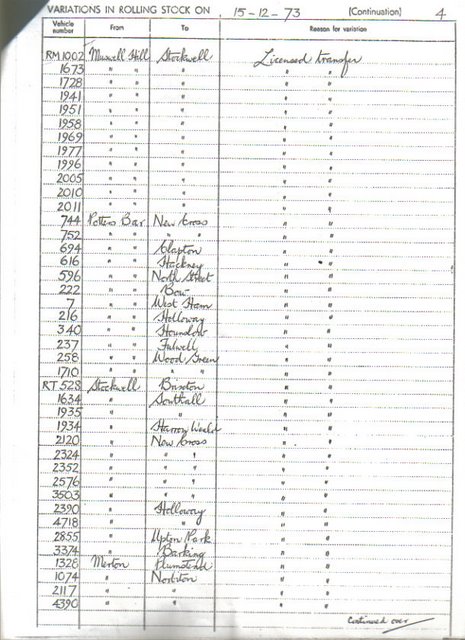 VARIATIONS IN ROLLING STOCK ON 15-12-73 (Continuation) 4
Vehicle number From To Reason for variation
RM 1002 Muswell Hill Stockwell Licensed transfer
1673 " " " " "
1728 " " " " "
1941 " " " " "
1951 " " " " "
1958 " " " " "
1969 " " " " "
1977 " " " " "
1996 " " " " "
2005 " " " " "
2010 " " " " "
2011 " " " " "
744 Potters Bar New Cross " "
752 " " " " " "
694 " " Clapton " "
616 " " Hackney " "
596 " " North Street " "
222 " " Bow " "
7 " " West Ham " "
216 " " Holloway " "
340 " " Hounslow " "
237 " " Fulwell " "
258 " " Wood Green " "
1710 " " " " " "
RT 528 Stockwell Brixton " "
1634 " Southall " "
1935 " " " "
1934 " Harrow Weald " "
2120 " New Cross " "
2324 " " " " "
2352 " " " " "
2576 " " " " "
3503 " " " " "
2390 " Holloway " "
4718 " " " "
2855 " Upton Park " "
3374 " Barking " "
1328 Merton Plumstead " "
1074 " Norbiton " "
2117 " " " "
4390 " " " "
Continued over